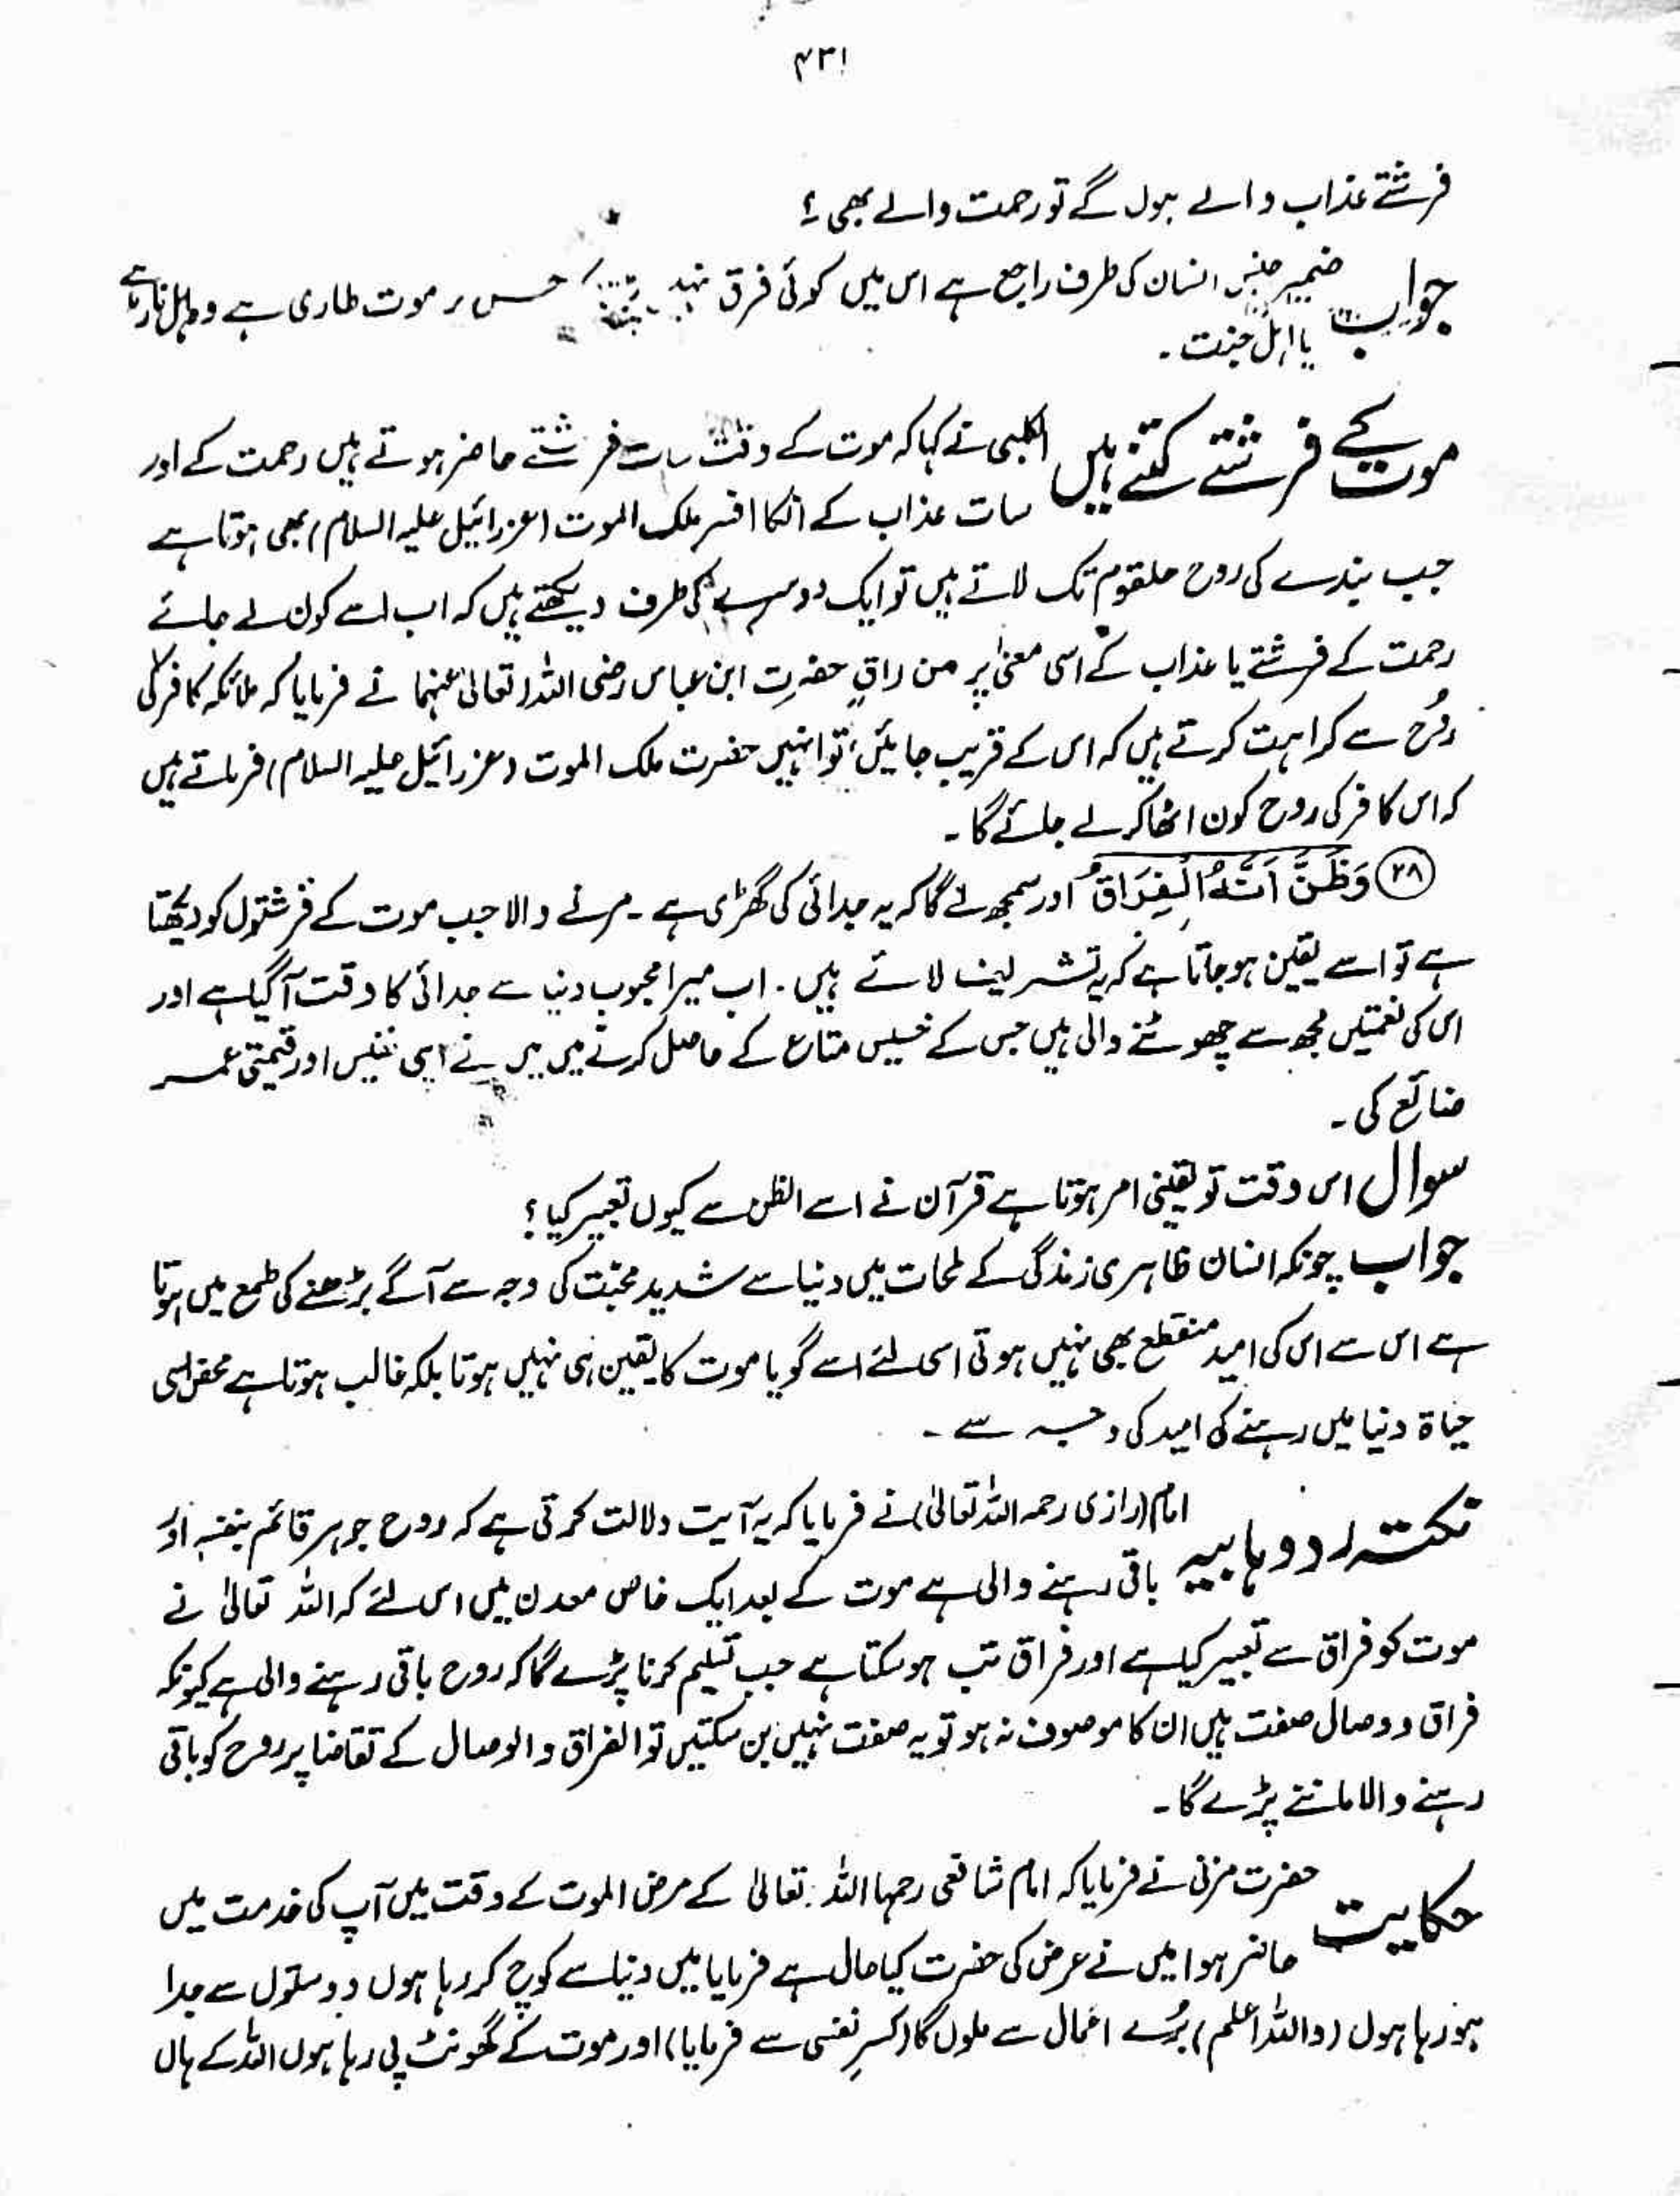 ۴۳۱
فرشتے عذاب والے ہوں گے تو رحمت والے بھی ؟
جواب ضمیر جنس انسان کی طرف راجع ہے اس میں کوئی فرق جس پر موت طاری ہے وہ اہل نار ہے
یا اہل جنت ۔
موت کے فرشتے کتنے ہیں الکلبی نے کہا کہ موت کے وقت سات فرشتے حاضر ہوتے ہیں رحمت کے اور
سات عذاب کے انکا افسر ملک الموت (عزرائیل علیہ السلام) بھی ہوتا ہے
جب بندے کی روح حلقوم تک لاتے ہیں تو ایک دوسرے کی طرف دیکھتے ہیں کہ اب اسے کون لے جائے
رحمت کے فرشتے یا عذاب کے اسی معنیٰ پر من راقٍ حضرت ابن عباس رضی اللہ تعالیٰ عنہما نے فرمایا کہ ملائکہ کافر کی
رُوح سے کراہت کرتے ہیں کہ اس کے قریب جائیں، تو انہیں حضرت ملک الموت (عزرائیل علیہ السلام) فرماتے ہیں
کہ اس کافر کی روح کون اٹھا کر لے جائے گا ۔
(۲۸) وَظَنَّ اَنَّهُ الْفِرَاقُ اور سمجھ لے گا کہ یہ جدائی کی گھڑی ہے ۔ مرنے والا جب موت کے فرشتوں کو دیکھتا
ہے تو اسے یقین ہوجاتا ہے کہ یہ تشریف لائے ہیں ۔ اب میرا محبوب دنیا سے جدائی کا وقت آگیا ہے اور
اس کی نعمتیں مجھ سے چھوٹنے والی ہیں جس کے خسیس متاع کے حاصل کرنے میں میں نے اپنی نفیس اور قیمتی عمر
ضائع کی ۔
سوال اس وقت تو یقینی امر ہوتا ہے قرآن نے اسے الظن سے کیوں تعبیر کیا ؟
جواب چونکہ انسان ظاہری زندگی کے لمحات میں دنیا سے شدید محبّت کی وجہ سے آگے بڑھنے کی طمع میں ہوتا
ہے اس سے اس کی امید منقطع بھی نہیں ہوتی اسی لئے اسے گویا موت کا یقین ہی نہیں ہوتا بلکہ غالب ہوتا ہے محض اسی
حیاۃ دنیا میں رہنے کی امید کی وجہ سے ۔
نکتہ رد وہابیہ امام (رازی رحمہ اللہ تعالیٰ) نے فرمایا کہ یہ آیت دلالت کرتی ہے کہ روح جوہر قائم بنفسہ اور
باقی رہنے والی ہے موت کے بعد ایک خاص معدن میں اس لئے کہ اللہ تعالیٰ نے
موت کو فراق سے تعبیر کیا ہے اور فراق تب ہوسکتا ہے جب تسلیم کرنا پڑے گا کہ روح باقی رہنے والی ہے کیونکہ
فراق و وصال صفت ہیں ان کا موصوف نہ ہو تو یہ صفت نہیں بن سکتیں تو الفراق والوصال کے تقاضا پر روح کو باقی
رہنے والا ماننے پڑے گا ۔
حکایت حضرت مزنی نے فرمایا کہ امام شافعی رحمہما اللہ تعالیٰ کے مرض الموت کے وقت میں آپ کی خدمت میں
حاضر ہوا میں نے عرض کی حضرت کیا حال ہے فرمایا میں دنیا سے کوچ کر رہا ہوں دوستوں سے جدا
ہو رہا ہوں (واللہ اعلم) بُرے اعمال سے ملوں گا (کسرِ نفسی سے فرمایا) اور موت کے گھونٹ پی رہا ہوں اللہ کے ہاں